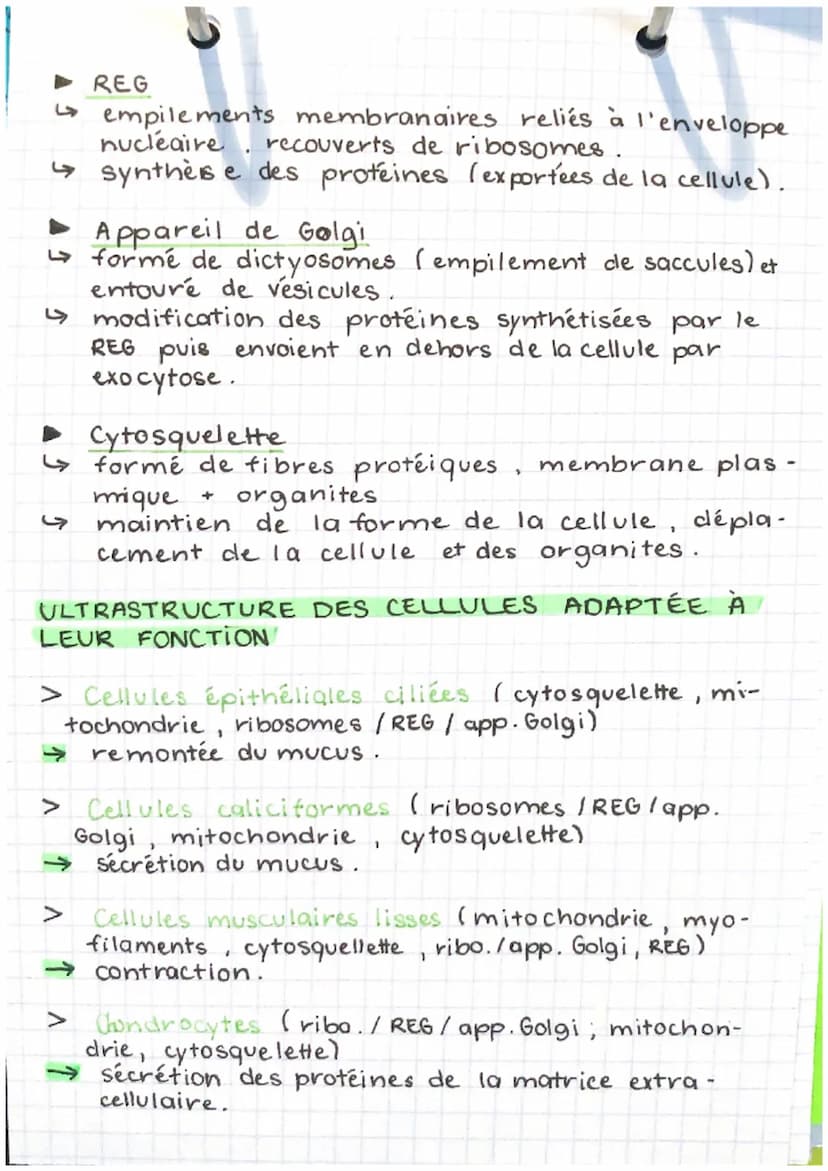 ▶ REG
↳ empilements membranaires reliés à l'enveloppe
nucléaire, recouverts de ribosomes.
↳ synthèse des protéines (exportées de la cellule).
▶ Appareil de Golgi
↳ formé de dictyosomes (empilement de saccules) et
entouré de vésicules.
↳ modification des protéines synthétisées par le
REG puis envoient en dehors de la cellule par
exocytose.
▶ Cytosquelette
↳ formé de fibres protéiques, membrane plas-
mique + organites
↳ maintien de la forme de la cellule, dépla-
cement de la cellule et des organites.
ULTRASTRUCTURE DES CELLULES ADAPTÉE À
LEUR FONCTION
> Cellules épithéliales ciliées (cytosquelette, mi-
tochondrie, ribosomes / REG / app. Golgi)
→ remontée du mucus.
> Cellules caliciformes (ribosomes / REG / app.
Golgi, mitochondrie, cytosquelette)
→ sécrétion du mucus.
> Cellules musculaires lisses (mitochondrie, myo-
filaments, cytosquellette, ribo. / app. Golgi, REG)
→ contraction.
> Chondrocytes (ribo. / REG / app. Golgi ; mitochon-
drie, cytosquelette)
→ sécrétion des protéines de la matrice extra-
cellulaire.